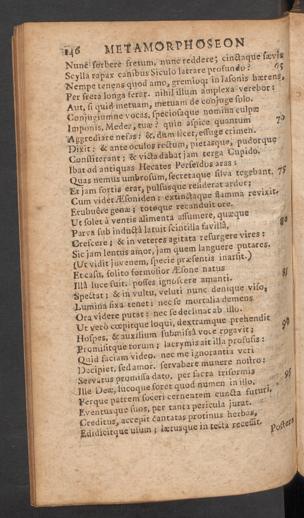 146 METAMORPHOSEON
Nunc sorbere fretum, nunc reddere; cinctaque sævis
Scylla rapax canibus Siculo latrare profundo? 65
Nempe tenens quod amo, gremioq; in Iasonis hærens,
Per freta longa ferar. nihil illum amplexa verebor:
Aut, si quid metuam, metuam de conjuge solo.
Conjugiumne vocas, speciosaque nomina culpæ
Imponis, Medea, tuæ? quin aspice quantum 70
Aggrediare nefas: &, dum licet, effuge crimen.
Dixit: & ante oculos rectum, pietasque, pudorque
Constiterant: & victa dabat jam terga Cupido.
Ibat ad antiquas Hecates Perseidos aras:
Quas nemus umbrosum, secretaque silva tegebant. 75
Et jam fortis erat, pulsusque residerat ardor;
Cum videt Æsoniden: extinctaque flamma revixit.
Erubuêre genæ: totoque recanduit ore.
Ut solet à ventis alimenta assumere, quæque
Parva sub inductâ latuit scintilla favillâ, 80
Crescere; & in veteres agitata resurgere vires:
Sic jam lentus amor, jam quem languere putares,
(Ut vidit juvenem, specie præsentis inarsit.)
Et casu, solito formosior Æsone natus
Illâ luce fuit. posses ignoscere amanti. 85
Spectat; & in vultu, veluti nunc denique viso,
Lumina fixa tenet: nec se mortalia demens
Ora videre putat: nec se declinat ab illo.
Ut verò cœpitque loqui, dextramque prehendit
Hospes, & auxilium submissâ voce rogavit; 90
Promisitque torum; lacrymis ait illa profusis:
Quid faciam video. nec me ignorantia veri
Decipiet, sed amor. servabere munere nostro:
Servatus promissa dato. per sacra triformis
Ille Deæ, lucoque foret quod numen in illo, 95
Perque patrem soceri cernentem cuncta futuri,
Eventusque suos, per tanta pericula jurat.
Creditus, accepit cantatas protinus herbas,
Edidicitque usum; lætusque in tecta recessit.
Postera